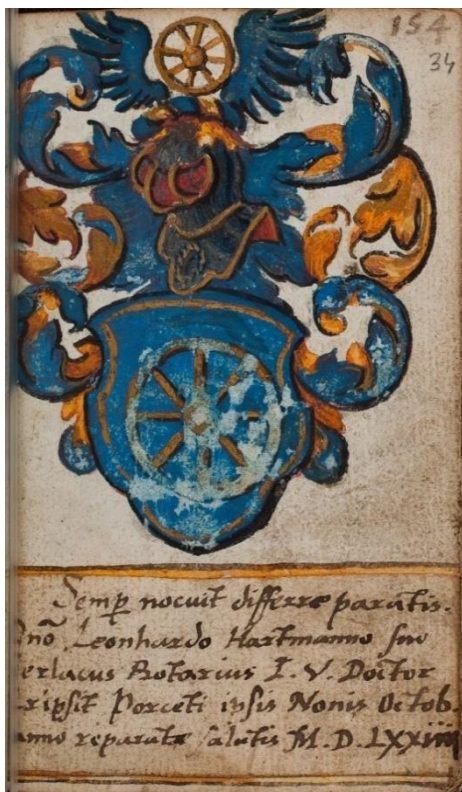 154
34
Semp̱ nocuit differre paratis.
nõ Leonhardo Hartmanno suo
erlacus Rotarius I. V. Doctor
ripsit Porceti ipsis Nonis Octob.
anno reparatæ salutis M. D. LXXIIII